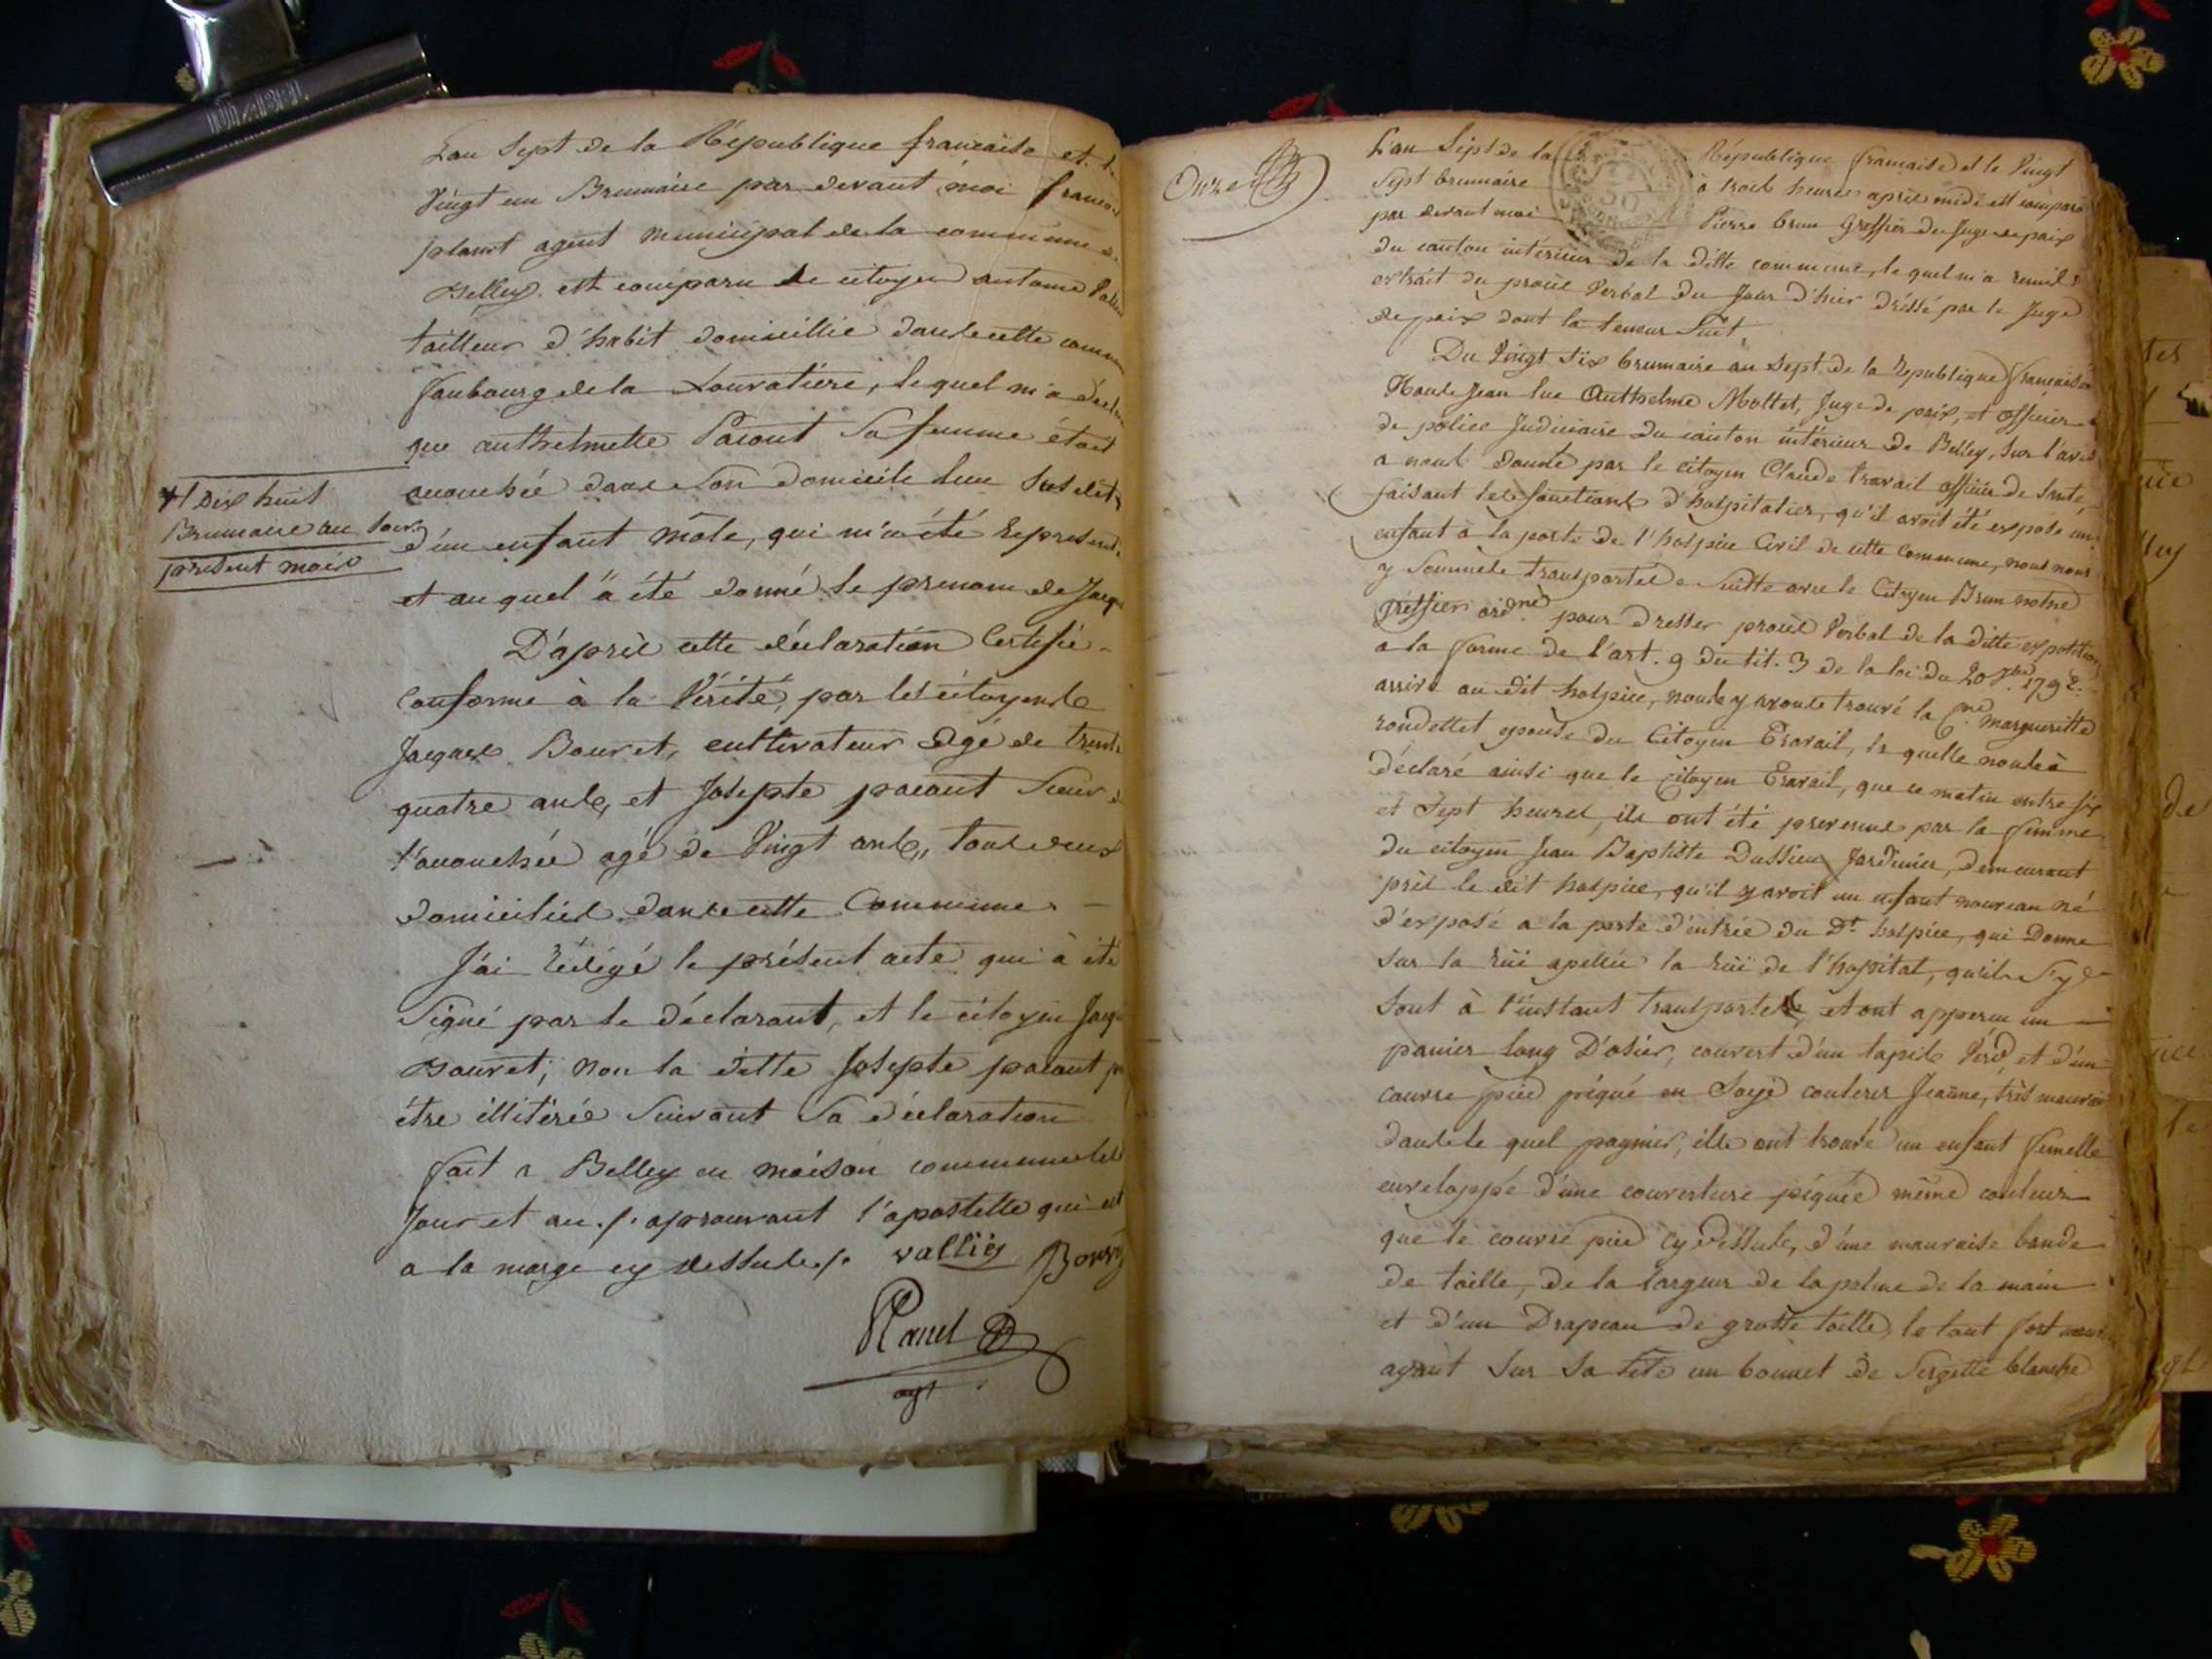 L'an Sept de la République francaise et le
Vingt un Brumaire par devant moi francois
planet agent municipal de la commune de
Belley. est comparu le citoyen antoine
tailleur d'habit domicillié dans cette commune
faubourg de la Louvatiere, le quel m'a déclaré
que anthelmette Pacout Sa femme étoit
accouchée dans Son domicile Sus dit
+ Le Dix huit
Brumaire au Soir
présent mois
d'un enfant mâle, qui m'a été Representé
et au quel a été donné le prenom de Jacque
D'après cette déclaration Certifié
Conforme à la Vérité, par les citoyens
Jacques Bouvet, cultivateur agé de trente
quatre ans, et Josepte pacout Soeur de
l'accouchée agé de Vingt ans, tous deux
domiciliés dans cette Commune
J'ai Rédigé le présent acte qui à été
Signé par le déclarant, et le citoyen Jacque
Bouvet; non la ditte Josepte pacout pr
être illitérée Suivant Sa déclaration
fait a Belley en maison commune les
Jour et an ./. aprouvant l'apostille qui est
a la marge cy dessus ./. vallié Bouvet
Planet
agt
Onze
L'an Sept de la République francaise et le Vingt
Sept brumaire à trois heures après midi est comparu
par devant moi Pierre brun Greffier du Juge de paix
du canton intérieur de la ditte commune, le quel m'a remis
extrait du procès Verbal du Jour d'hier dréssé par le Juge
de paix dont la teneur Suit,
Du Vingt Six brumaire an Sept de la République francaise
Nous Jean luc Anthelme Mollet, Juge de paix, et officier
de police Judiciaire du canton intérieur de Belley, Sur l'avis
a nous donné par le Citoyen Claude travail officier de Santé
faisant les fonctions d'hospitalier, qu'il avoit été exposé un
enfant à la porte de l'hospice Civil de cette Commune, nous nous
y Sommes transportés de Suitte avec le Citoyen Brun notre
Greffier ord.re pour dresser procès Verbal de la ditte exposition
a la forme de l'art. 9 du tit. 3 de la loi du 20 7bre 1792.
arrivé au dit hospice, nous y avons trouvé la C.ne Marguerite
rondettet epouse du Citoyen Travail, la quelle nous à
déclaré ainsi que le Citoyen Travail, que ce matin entre Six
et Sept heures, ils ont été prevenus par la femme
du citoyen Jean Baptiste Dussieux Jardinier, demeurant
près le dit hospice, qu'il y avoit un enfant nouveau né
d'exposé a la porte d'entrée du dt. hospice, qui Donne
Sur la rüe apellée la rüe de l'hopital, qu'ils S'y
Sont à l'instant transportés, et ont apperçu un
panier long D'osier, couvert d'un tapis Verd, et d'un
couvre pied piqué en Soye couleur Jeaune, très mauvais
dans le quel pagnier, ils ont trouvé un enfant femelle
enveloppé d'une couverture piquée même couleur
que le couvre pied cy dessus, d'une mauvaise bande
de toille, de la largeur de la palme de la main
et d'un Drapeau de grosse toille, le tout fort mauvais
ayant Sur Sa tête un bonnet de Sergette blanche